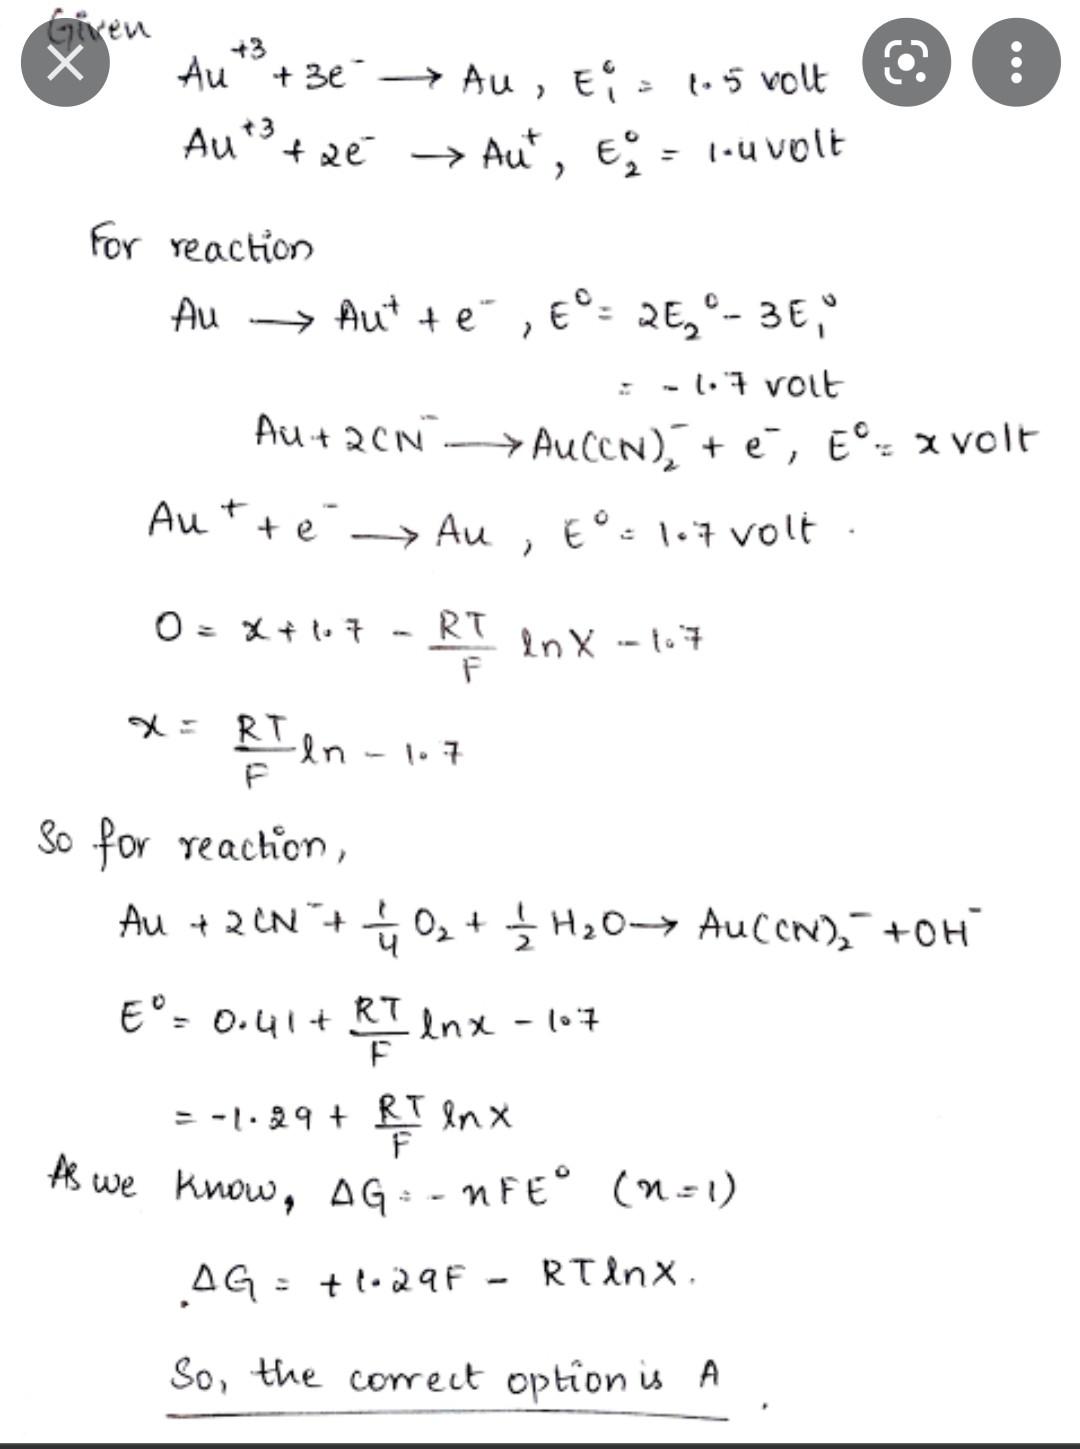 Given
Au⁺³ + 3e⁻ → Au , E₁° = 1.5 volt
Au⁺³ + 2e⁻ → Au⁺ , E₂° = 1.4 volt
For reaction
Au → Au⁺ + e⁻ , E° = 2E₂° - 3E₁°
= - 1.7 volt
Au + 2CN⁻ → Au(CN)₂⁻ + e⁻, E° = x volt
Au⁺ + e⁻ → Au , E° = 1.7 volt .
0 = x + 1.7 - RT/F ln X - 1.7
x = RT/F ln - 1.7
So for reaction,
Au + 2CN⁻ + 1/4 O₂ + 1/2 H₂O → Au(CN)₂⁻ + OH⁻
E° = 0.41 + RT/F ln x - 1.7
= -1.29 + RT/F ln X
As we know, ΔG = - nFE° (n=1)
ΔG = +1.29F - RT ln X.
So, the correct option is A .